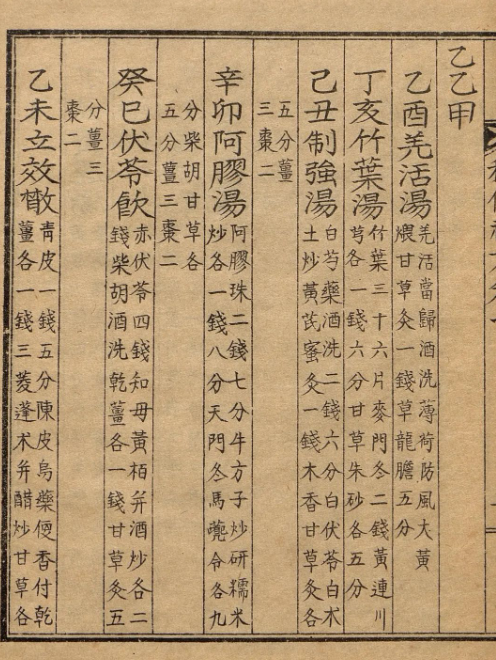 乙乙甲
乙酉羌活湯
羌活當歸酒洗薄荷防風大黃
煨甘草灸一錢草龍膽五分
丁亥竹葉湯
竹葉三十六片麥門冬二錢黃連川
芎各一錢六分甘草朱砂各五分
己丑制強湯
白芍藥酒洗二錢六分白伏苓白朮
土炒黃芪蜜灸一錢木香甘草灸各
五分薑
三棗二
辛卯阿膠湯
阿膠珠二錢七分牛方子炒研糯米
炒各一錢八分天門冬馬令各九
分柴胡甘草各
五分薑三棗二
癸巳伏苓飮
赤伏苓四錢知母黃栢并酒炒各二
錢柴胡酒洗乾薑各一錢甘草灸五
分薑三
棗二
乙未立效散
靑皮一錢五分陳皮烏藥便香付乾
薑各一錢三菱蓬朮并醋炒甘草各